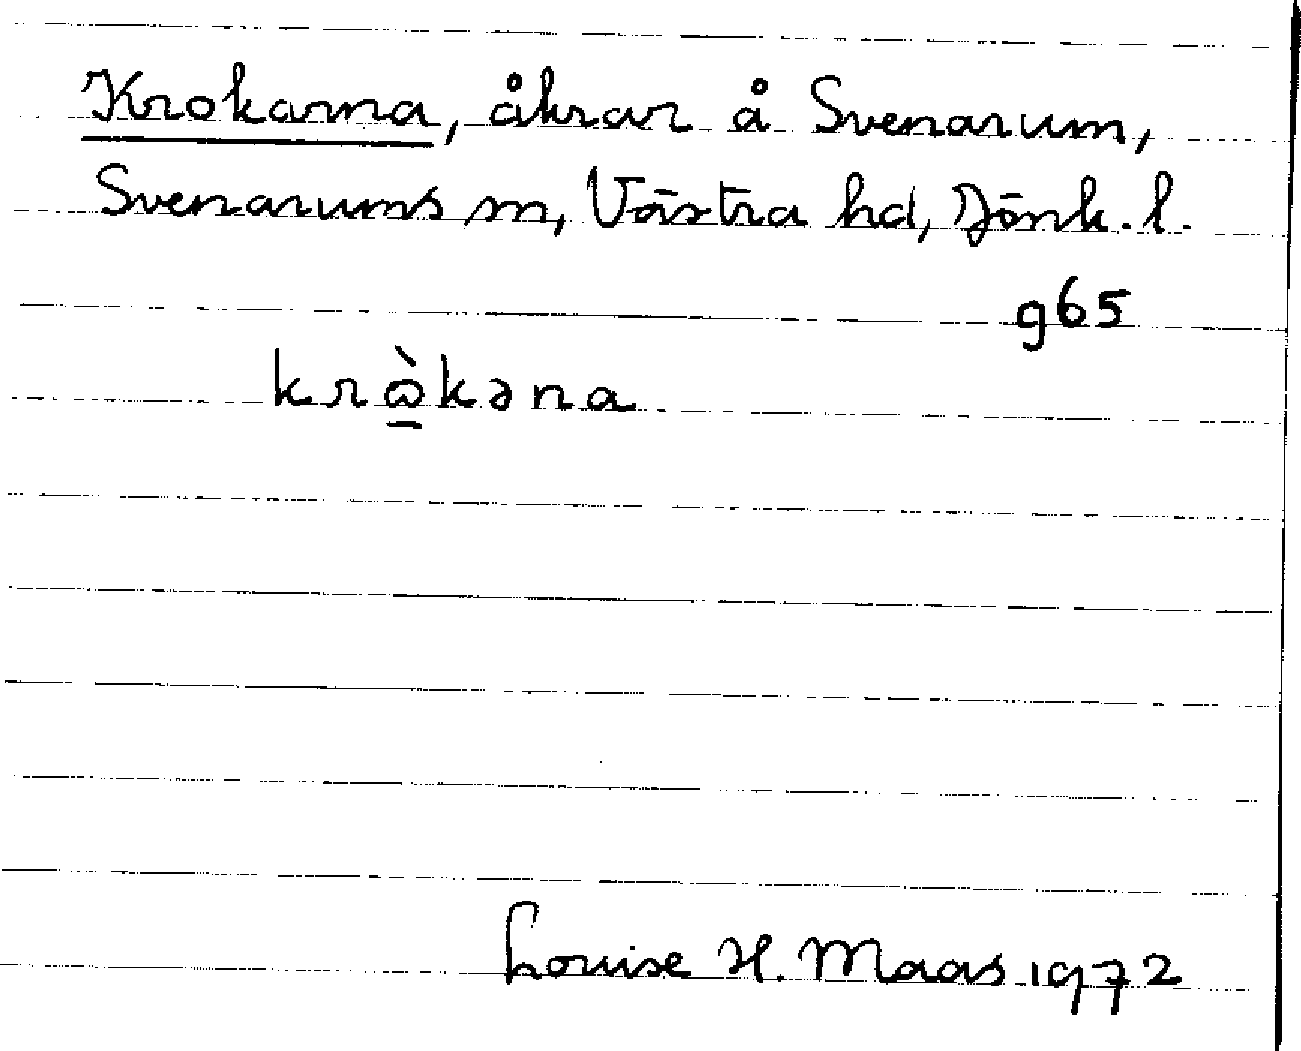 Krokarna, åkrar å Svenarum,
Svenarums sn, Västra hd, Jönk. l.
965
krὼ̠kəna
Louise H. Maas 1972